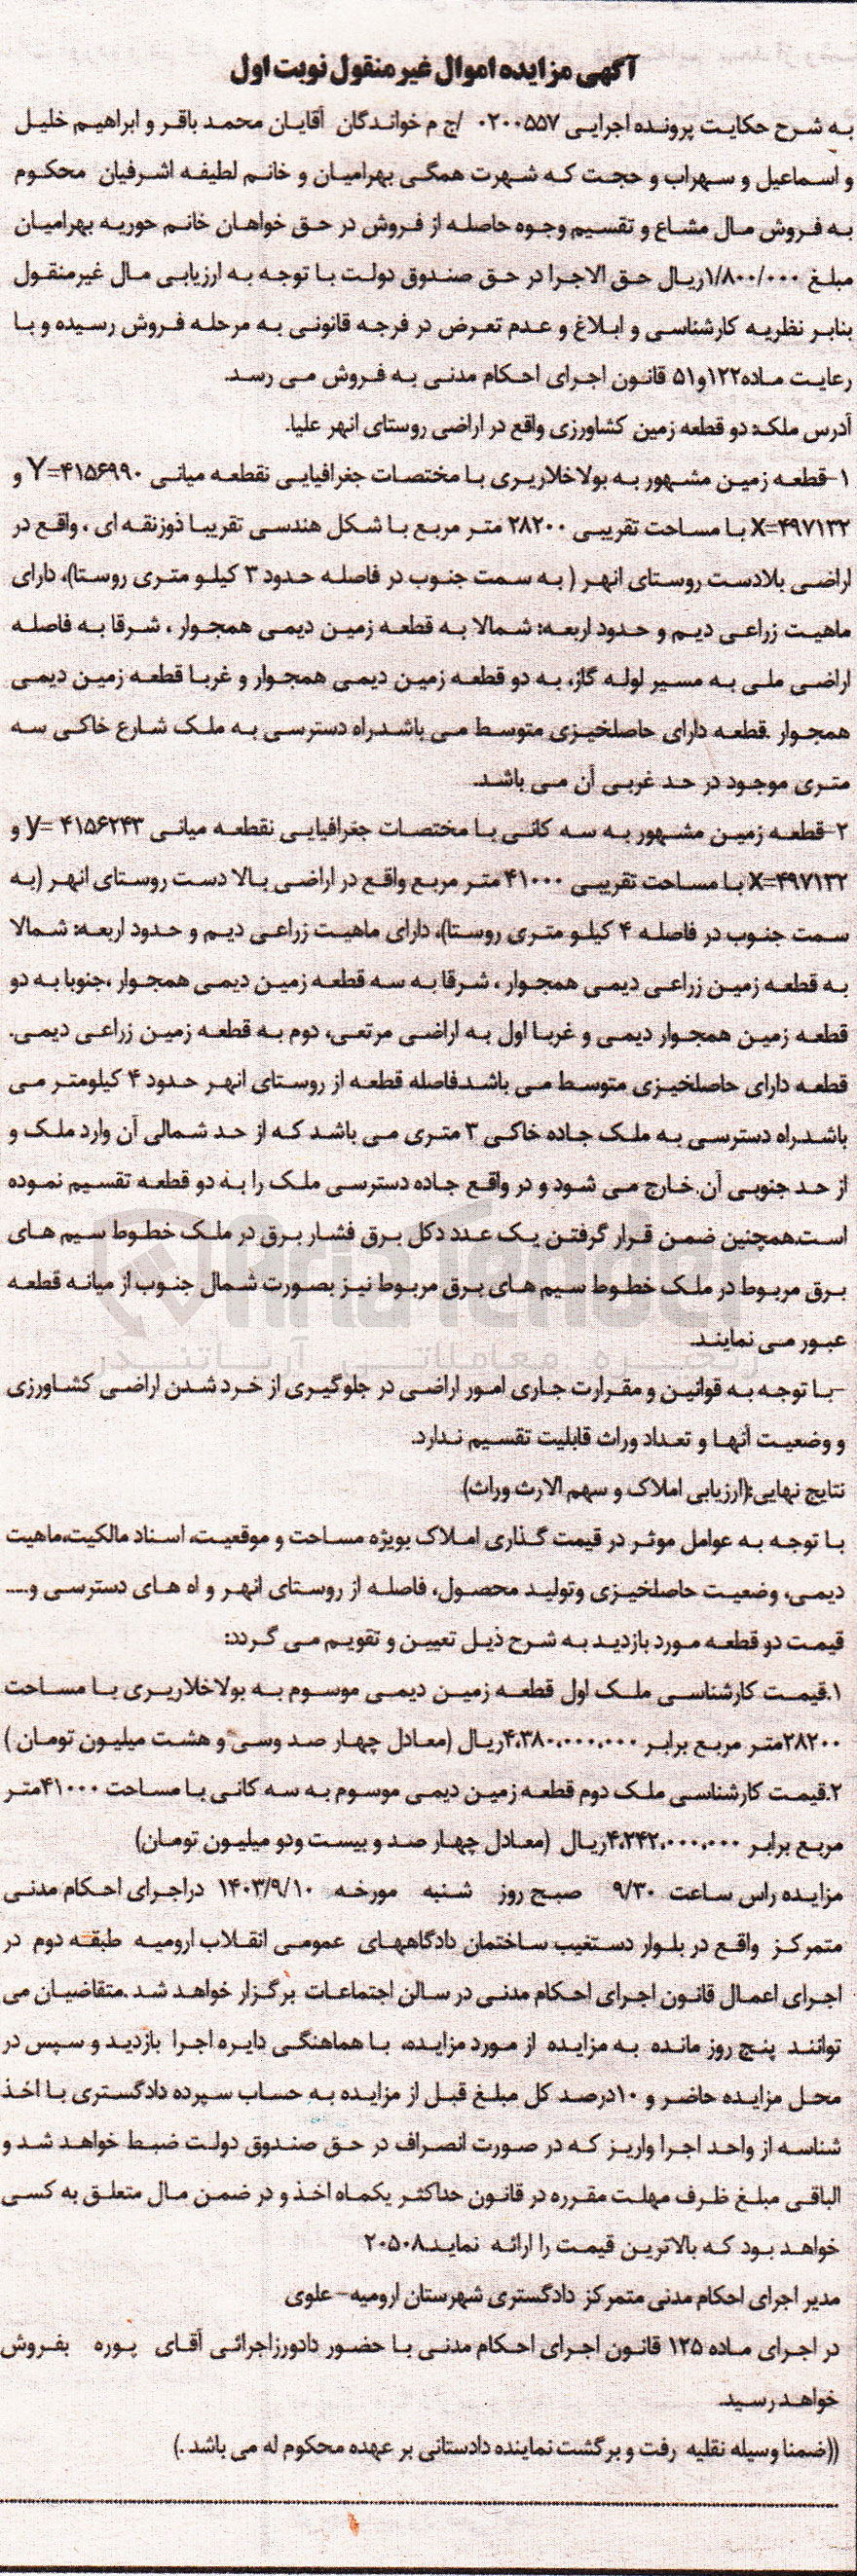 آگهی مزایده اموال غیر منقول نوبت اول
به شرح حکایت پرونده اجرایی ۰۲۰۰۵۵۷ /ج م خواندگان آقایان محمد باقر و ابراهیم خلیل
و اسماعیل و سهراب و حجت که شهرت همگی بهرامیان و خانم لطیفه اشرفیان محکوم
به فروش مال مشاع و تقسیم وجوه حاصله از فروش در حق خواهان خانم حوریه بهرامیان
مبلغ ۱/۸۰۰/۰۰۰ریال حق الاجرا در حق صندوق دولت با توجه به ارزیابی مال غیرمنقول
بنابر نظریه کارشناسی و ابلاغ و عدم تعرض در فرجه قانونی به مرحله فروش رسیده و با
رعایت ماده۱۲۲و۵۱ قانون اجرای احکام مدنی به فروش می رسد.
آدرس ملک: دو قطعه زمین کشاورزی واقع در اراضی روستای انهر علیا.
۱-قطعه زمین مشهور به بولاخلاریری با مختصات جغرافیایی نقطعه میانی Y=۴۱۵۶۹۹۰ و
X=۴۹۷۱۳۲ با مساحت تقریبی ۲۸۲۰۰ متر مربع با شکل هندسی تقریبا ذوزنقه ای ، واقع در
اراضی بلادست روستای انهر ( به سمت جنوب در فاصله حدود ۳ کیلو متری روستا)، دارای
ماهیت زراعی دیم و حدود اربعه: شمالا به قطعه زمین دیمی همجوار ، شرقا به فاصله
اراضی ملی به مسیر لوله گاز، به دو قطعه زمین دیمی همجوار و غربا قطعه زمین دیمی
همجوار .قطعه دارای حاصلخیزی متوسط می باشدراه دسترسی به ملک شارع خاکی سه
متری موجود در حد غربی آن می باشد.
۲-قطعه زمین مشهور به سه کانی با مختصات جغرافیایی نقطعه میانی y= ۴۱۵۶۲۴۳ و
X=۴۹۷۱۳۲ با مساحت تقریبی ۴۱۰۰۰ متر مربع واقع در اراضی بالا دست روستای انهر (به
سمت جنوب در فاصله ۴ کیلو متری روستا)، دارای ماهیت زراعی دیم و حدود اربعه: شمالا
به قطعه زمین زراعی دیمی همجوار ، شرقا به سه قطعه زمین دیمی همجوار ،جنوبا به دو
قطعه زمین همجوار دیمی و غربا اول به اراضی مرتعی، دوم به قطعه زمین زراعی دیمی.
قطعه دارای حاصلخیزی متوسط می باشد.فاصله قطعه از روستای انهر حدود ۴ کیلومتر می
باشدراه دسترسی به ملک جاده خاکی ۳ متری می باشد که از حد شمالی آن وارد ملک و
از حد جنوبی آن خارج می شود و در واقع جاده دسترسی ملک را به دو قطعه تقسیم نموده
است.همچنین ضمن قرار گرفتن یک عدد دکل برق فشار برق در ملک خطوط سیم های
برق مربوط در ملک خطوط سیم های برق مربوط نیز بصورت شمال جنوب از میانه قطعه
عبور می نمایند.
-با توجه به قوانین و مقرارت جاری امور اراضی در جلوگیری از خرد شدن اراضی کشاورزی
و وضعیت آنها و تعداد وراث قابلیت تقسیم ندارد.
نتایج نهایی:(ارزیابی املاک و سهم الارث وراث)
با توجه به عوامل موثر در قیمت گذاری املاک بویژه مساحت و موقعیت، اسناد مالکیت،ماهیت
دیمی، وضعیت حاصلخیزی وتولید محصول، فاصله از روستای انهر و اه های دسترسی و....
قیمت دو قطعه مورد بازدید به شرح ذیل تعیین و تقویم می گردد:
۱.قیمت کارشناسی ملک اول قطعه زمین دیمی موسوم به بولاخلاریری با مساحت
۲۸۲۰۰متر مربع برابر ۴،۳۸۰،۰۰۰،۰۰۰ریال (معادل چهار صد وسی و هشت میلیون تومان )
۲.قیمت کارشناسی ملک دوم قطعه زمین دیمی موسوم به سه کانی با مساحت ۴۱۰۰۰متر
مربع برابر ۴،۲۴۲،۰۰۰،۰۰۰ریال (معادل چهار صد و بیست ودو میلیون تومان)
مزایده راس ساعت ۹/۳۰ صبح روز شنبه مورخه ۱۴۰۳/۹/۱۰ دراجرای احکام مدنی
متمرکز واقع در بلوار دستغیب ساختمان دادگاههای عمومی انقلاب ارومیه طبقه دوم در
اجرای اعمال قانون اجرای احکام مدنی در سالن اجتماعات برگزار خواهد شد .متقاضیان می
توانند پنج روز مانده به مزایده از مورد مزایده، با هماهنگی دایره اجرا بازدید و سپس در
محل مزایده حاضر و ۱۰درصد کل مبلغ قبل از مزایده به حساب سپرده دادگستری با اخذ
شناسه از واحد اجرا واریز که در صورت انصراف در حق صندوق دولت ضبط خواهد شد و
الباقی مبلغ ظرف مهلت مقرره در قانون حداکثر یکماه اخذ و در ضمن مال متعلق به کسی
خواهد بود که بالاترین قیمت را ارائه نماید.۲۰۵۰۸
مدیر اجرای احکام مدنی متمرکز دادگستری شهرستان ارومیه- علوی
در اجرای ماده ۱۲۵ قانون اجرای احکام مدنی با حضور دادورزاجرائی آقای پوره بفروش
خواهد رسید.
((ضمنا وسیله نقلیه رفت و برگشت نماینده دادستانی بر عهده محکوم له می باشد .)
AriaTender
زنجیره معاملاتی آریاتندر